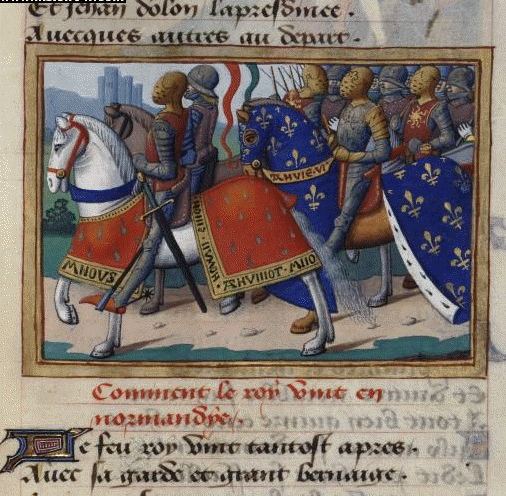 Et Jehan dolon lapresdinee.
Avecques autres au depart.
MNOVS
AHVIE·VI
AHVIIOT·MIIO
Comment le roy vint en
normandye.
Le feu roy vint tantost apres.
Avec sa garde et grant bernaige.